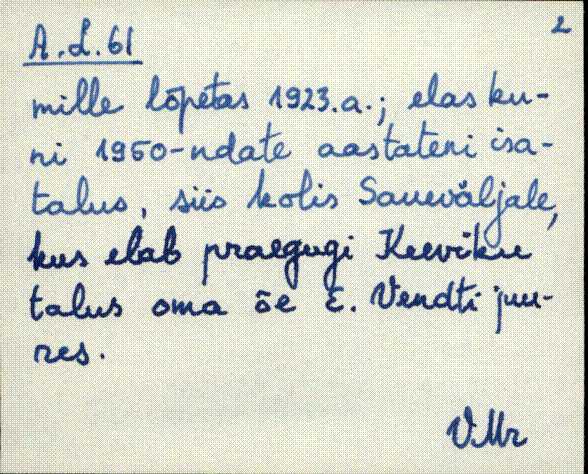 2
A.L.61
mille lõpetas 1923.a.; elas ku-
ni 1950-ndate aastateni isa-
talus, siis kolis Saueväljale,
kus elab praegugi Keeviku
talus oma õe E. Vendti juu-
res.
VMr